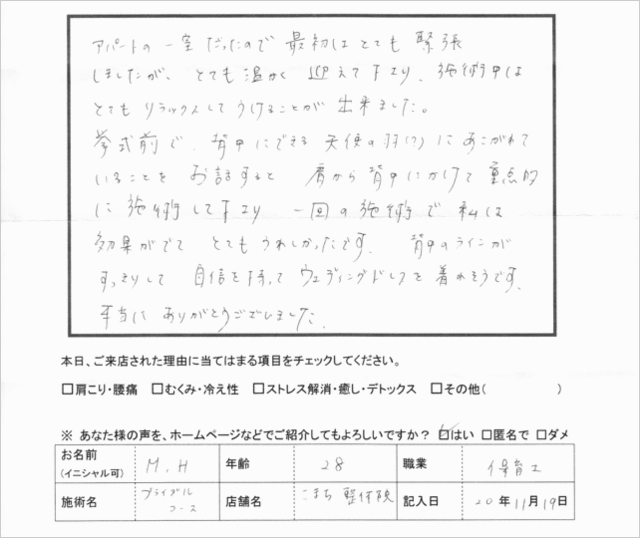 アパートの一室だったので最初はとても緊張
しましたが、とても温かく迎えて下さり、施術中は
とてもリラックスしてうけることが出来ました。
挙式前で、背中にできる天使の羽(?)にあこがれて
いることをお話すると肩から背中にかけて重点的
に施術して下さり一回の施術で私は
効果がでてとてもうれしかったです。背中のラインが
すっきりして自信を持ってウェディングドレスを着れそうです。
本当にありがとうございました。
本日、ご来店された理由に当てはまる項目をチェックしてください。
□肩こり・腰痛 □むくみ・冷え性 □ストレス解消・癒し・デトックス □その他( )
※ あなた様の声を、ホームページなどでご紹介してもよろしいですか? ☑はい □匿名で □ダメ
お名前(イニシャル可) M.H 年齢 28 職業 保育士
施術名 ブライダルコース 店舗名 こまち整体院 記入日 20年11月19日